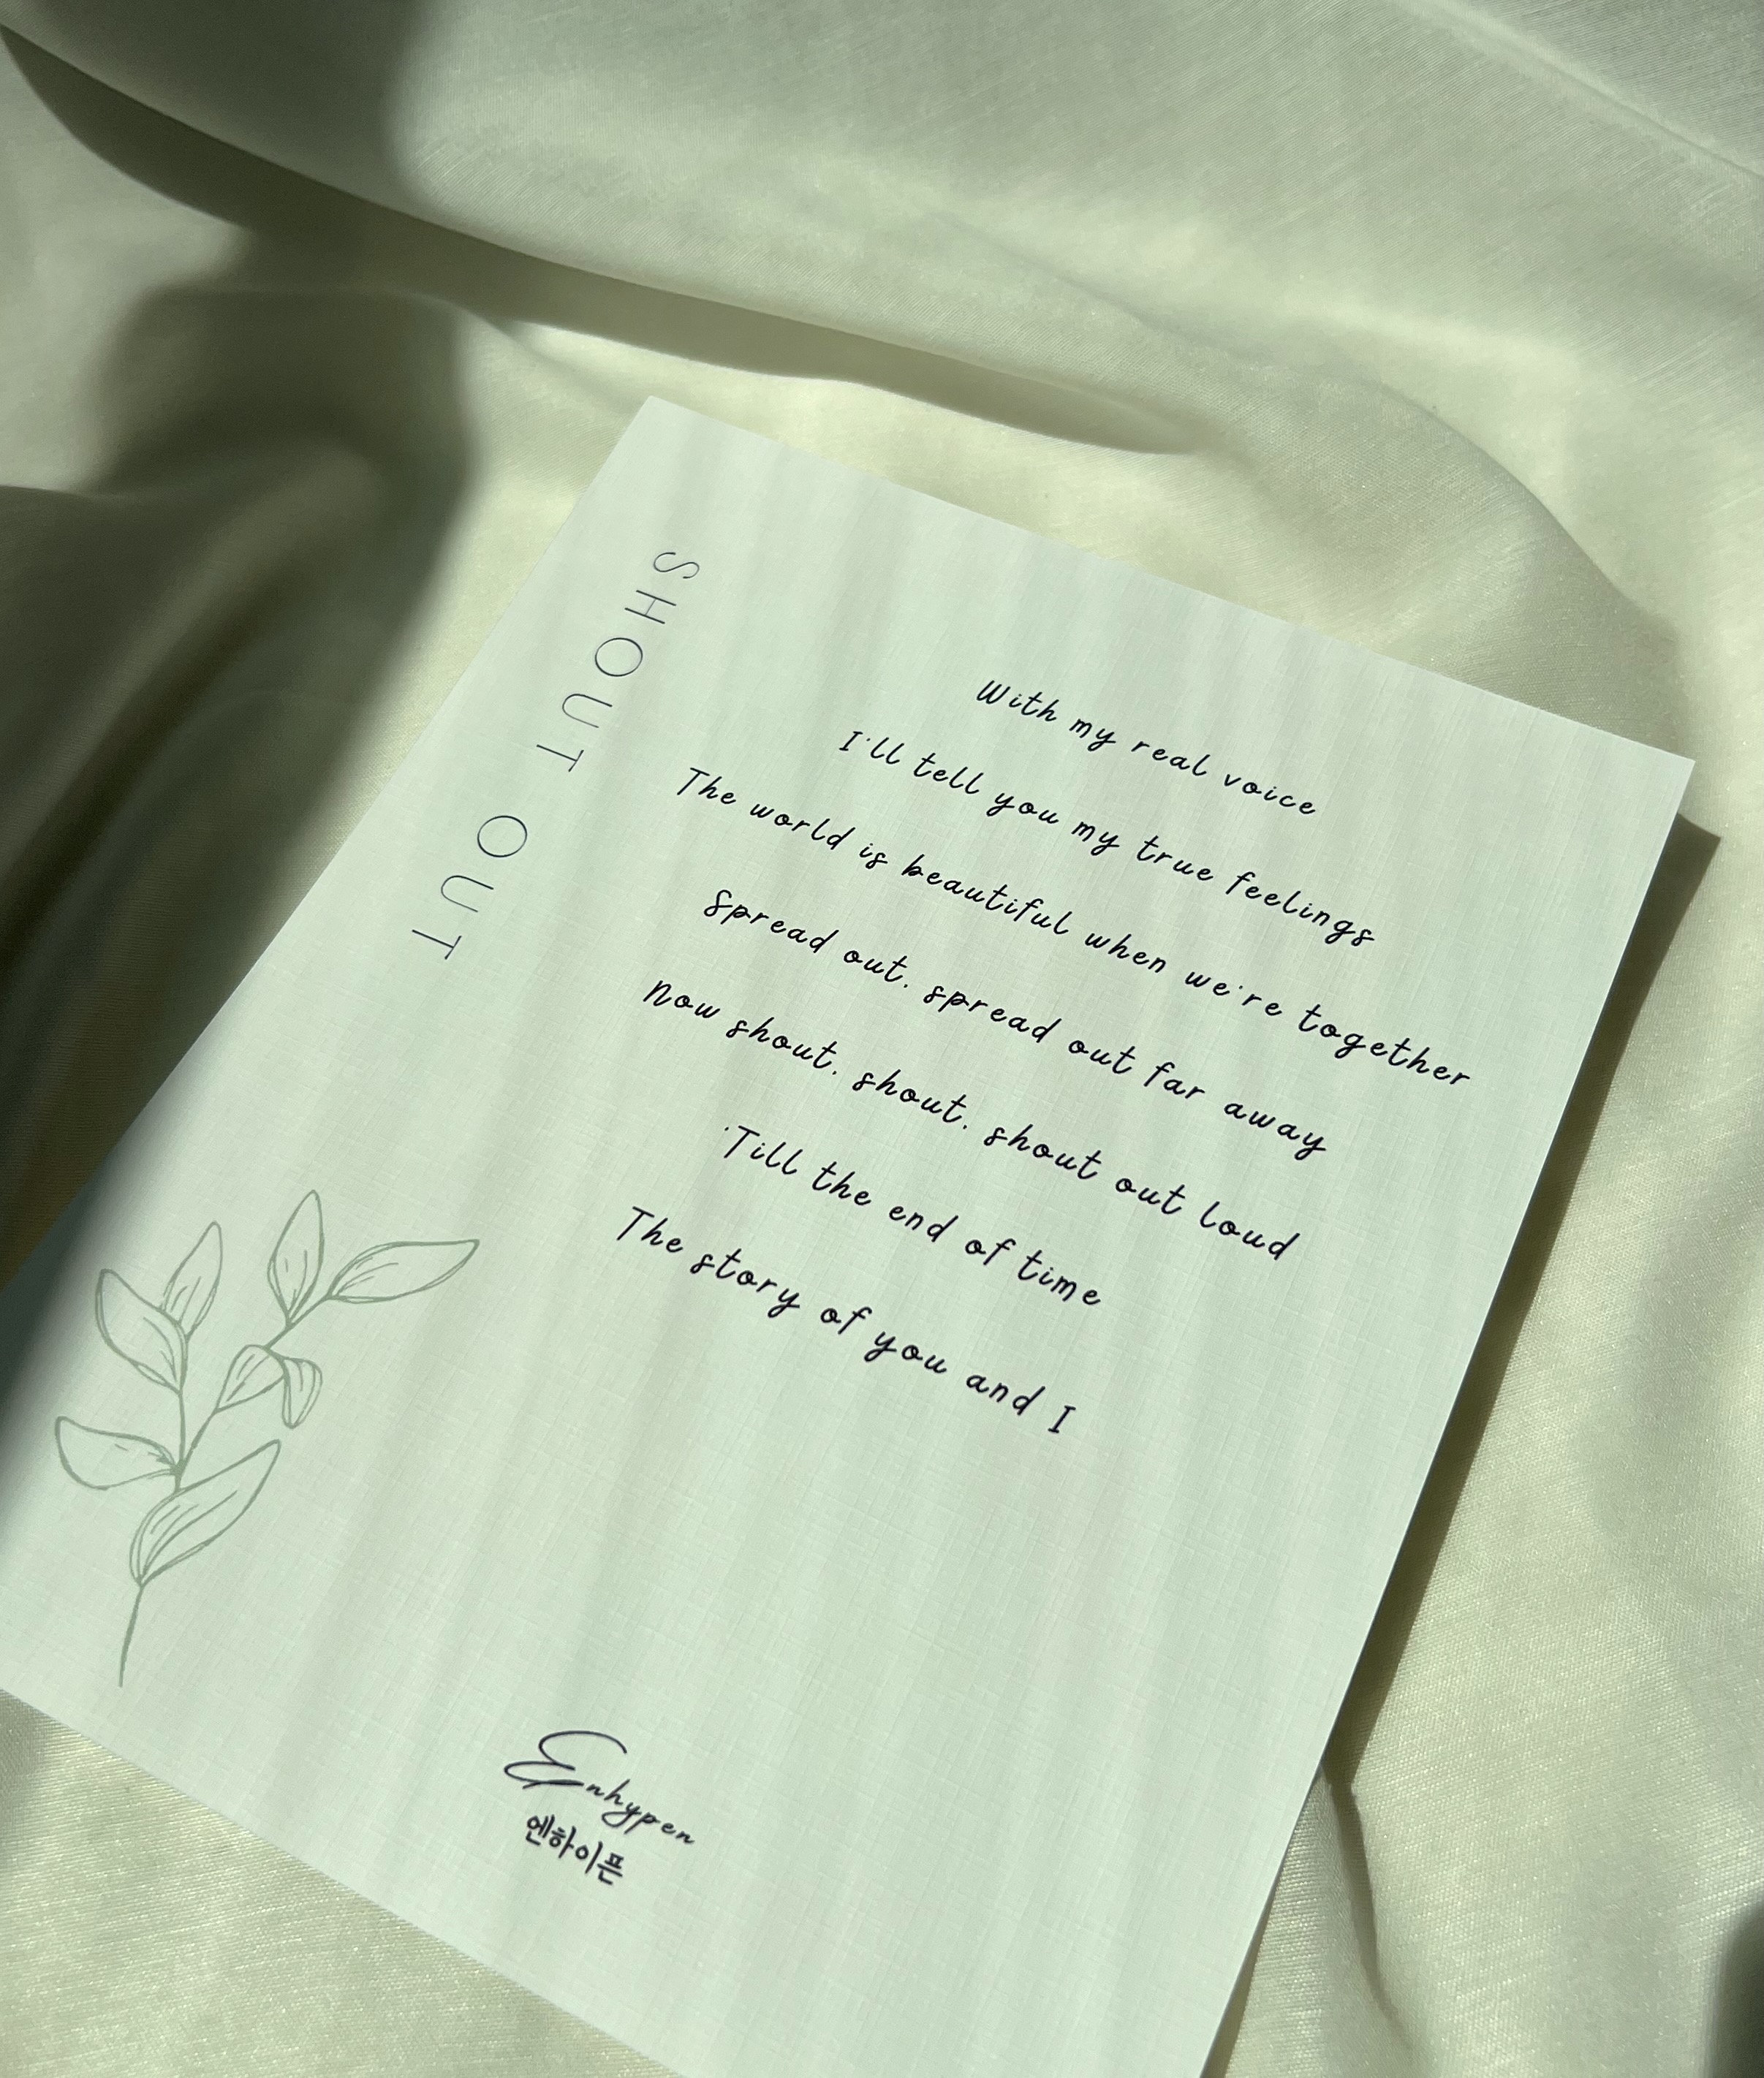 SHOUT OUT
With my real voice
I'll tell you my true feelings
The world is beautiful when we're together
Spread out, spread out far away
Now shout, shout, shout out loud
'Till the end of time
The story of you and I
Enhypen
엔하이픈